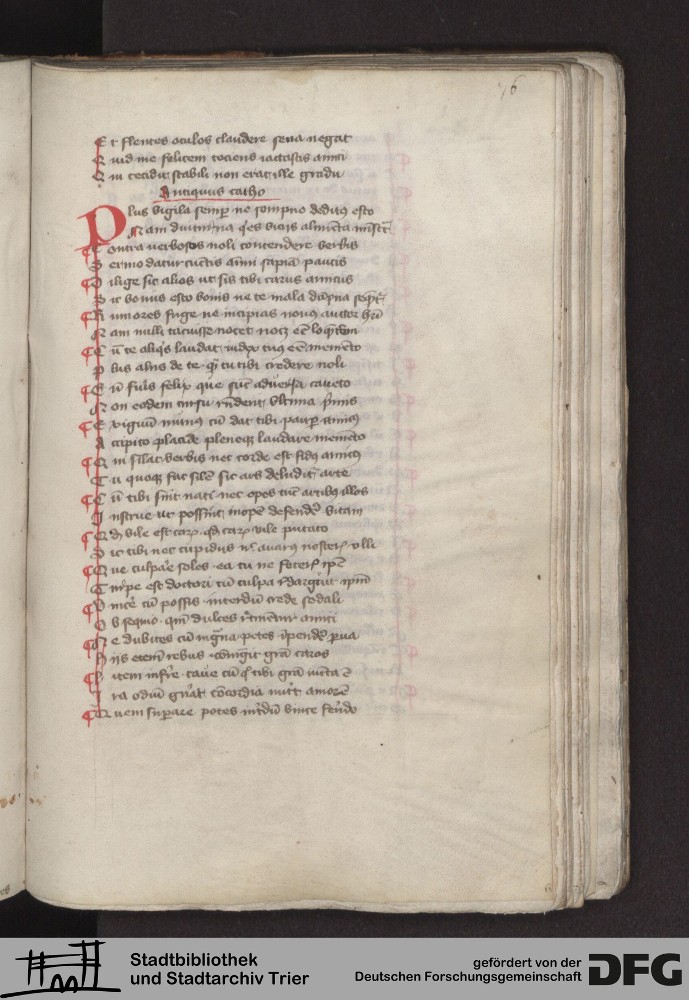 76
Et flentes oculos claudere seua negat
Quid me felicem tociens iactastis amici
Qui cecidit stabili non erat ille gradu
Antiquus catho
Plus vigila semp̄ ne sompno deditꝰ esto
Nam diuturna qͥes vicijs alimēta mīstͣt
Contra uerbosos noli contendere verbis
Sermo datur cūctis aīmi sapīa paucis
Dilige sic alios ut sis tibi carus amicus
Sic bonus esto bonis ne te mala
Rumores fuge ne incipias nouus auctor
Nam nulli tacuisse nocet nocꝫ eē
Cū te aliqͥs laudat iudex tuꝰ eē memēto
Plus alijs de te qͣ tu tibi credere noli
Cū fuis felix que sūt aduersa caueto
Non eodem cursu rn̄dent vltima pͥmis
Exiguū munus cū dat tibi paup̄ amicꝰ
Accipito placide pleneqꝫ laudare memēto
Qui sīlat verbis nec corde est fidꝰ amicꝰ
Tu quoqꝫ fac silē sic ars deludit̄ arte
Cū tibi sint nati nec opes tūc artibꝰ illos
Instrue ut possint inopē defendeͬ vitam
Qd̄ vile est carꝝ qd̄ carꝝ vile putato
Sic tibi nec cupidus nͨ auarꝰ nosceris vlli
Que culpare soles ea tu ne feceris ip̄e
Turpe est doctori cū culpa rͤdarguit ip̄m
Vinceͬ cū possis interdū cede sodali
Obsequio qm̄ dulces rͤtinentur amici
Ne dubites cū magna petes īpendeͬ parua
Hijs etem̄ rebus cōiūgit grā caros
Litem inferre caue cū qͦ tibi grā iūcta ē
Ira odiū gn̄at cōcordia nutͥt amorē
Quem suꝑare potes int̄dū vince ferēdo
Stadtbibliothek
und Stadtarchiv Trier
gefördert von der
Deutschen Forschungsgemeinschaft
DFG